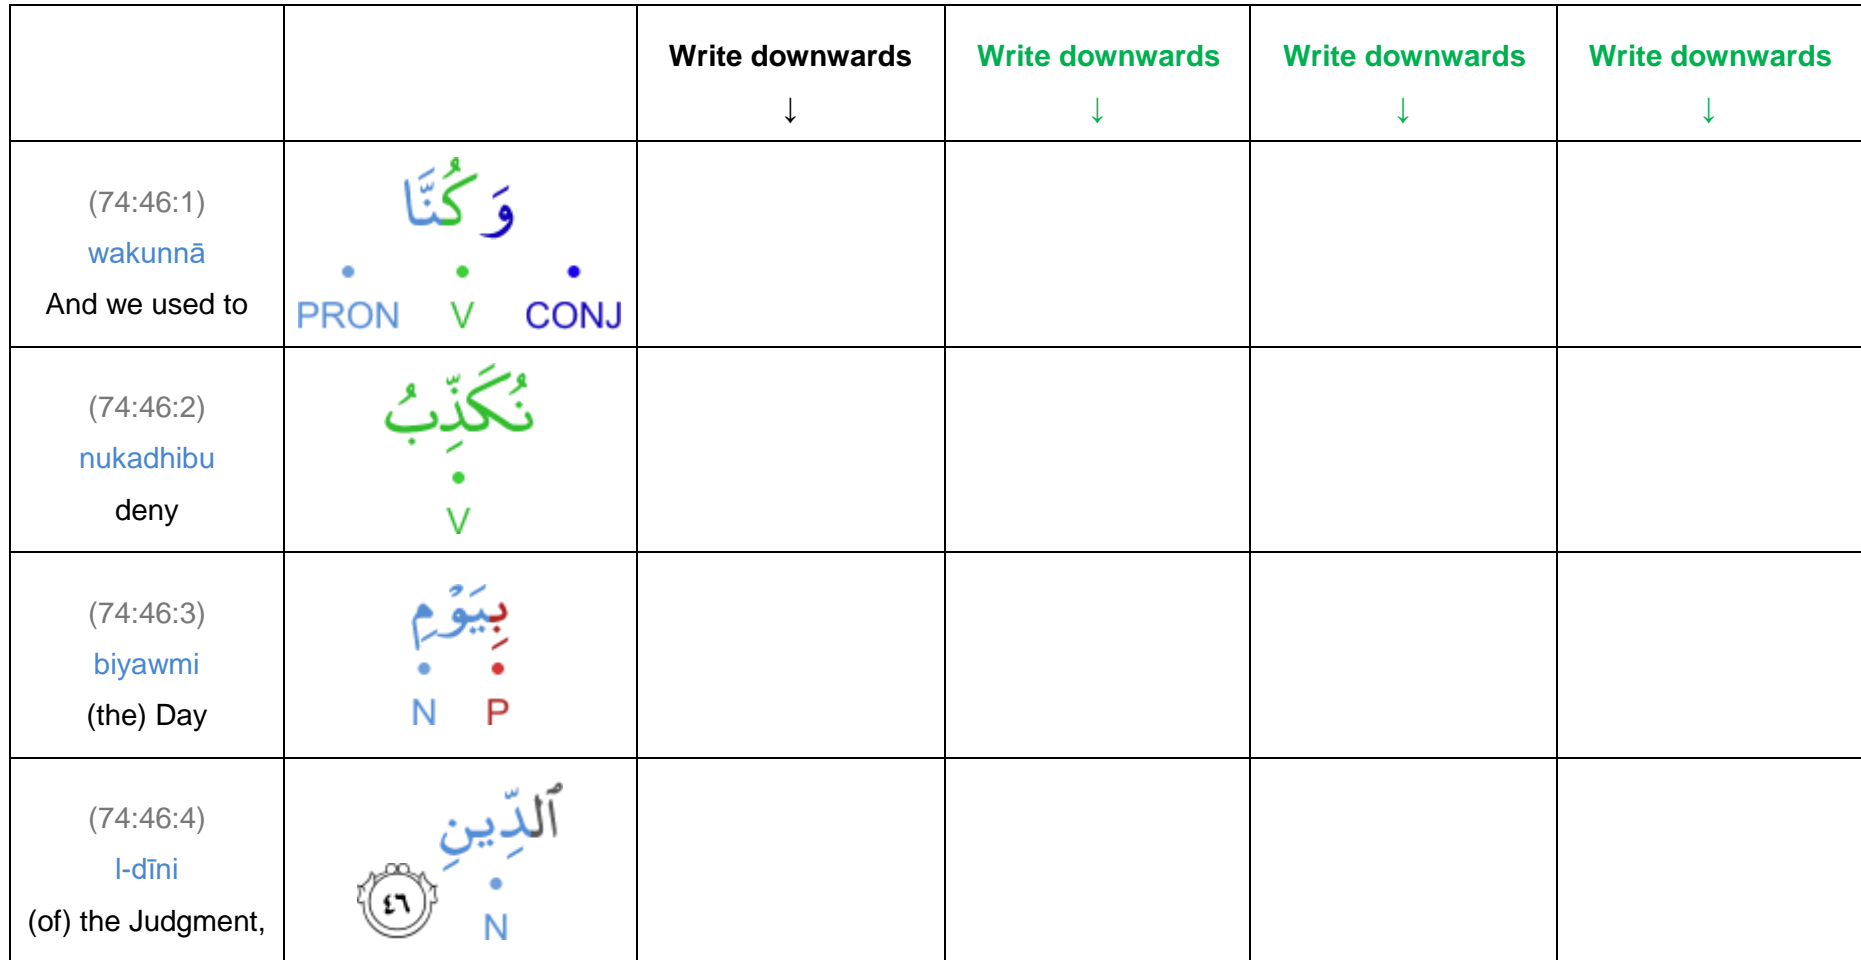 Write downwards Write downwards Write downwards Write downwards
↓ ↓ ↓ ↓
(74:46:1)
wakunnā
And we used to
وَكُنَّا
PRON V CONJ
(74:46:2)
nukadhibu
deny
نُكَذِّبُ
V
(74:46:3)
biyawmi
(the) Day
بِيَوْمِ
N P
(74:46:4)
l-dīni
(of) the Judgment,
ٱلدِّينِ
٤٦
N